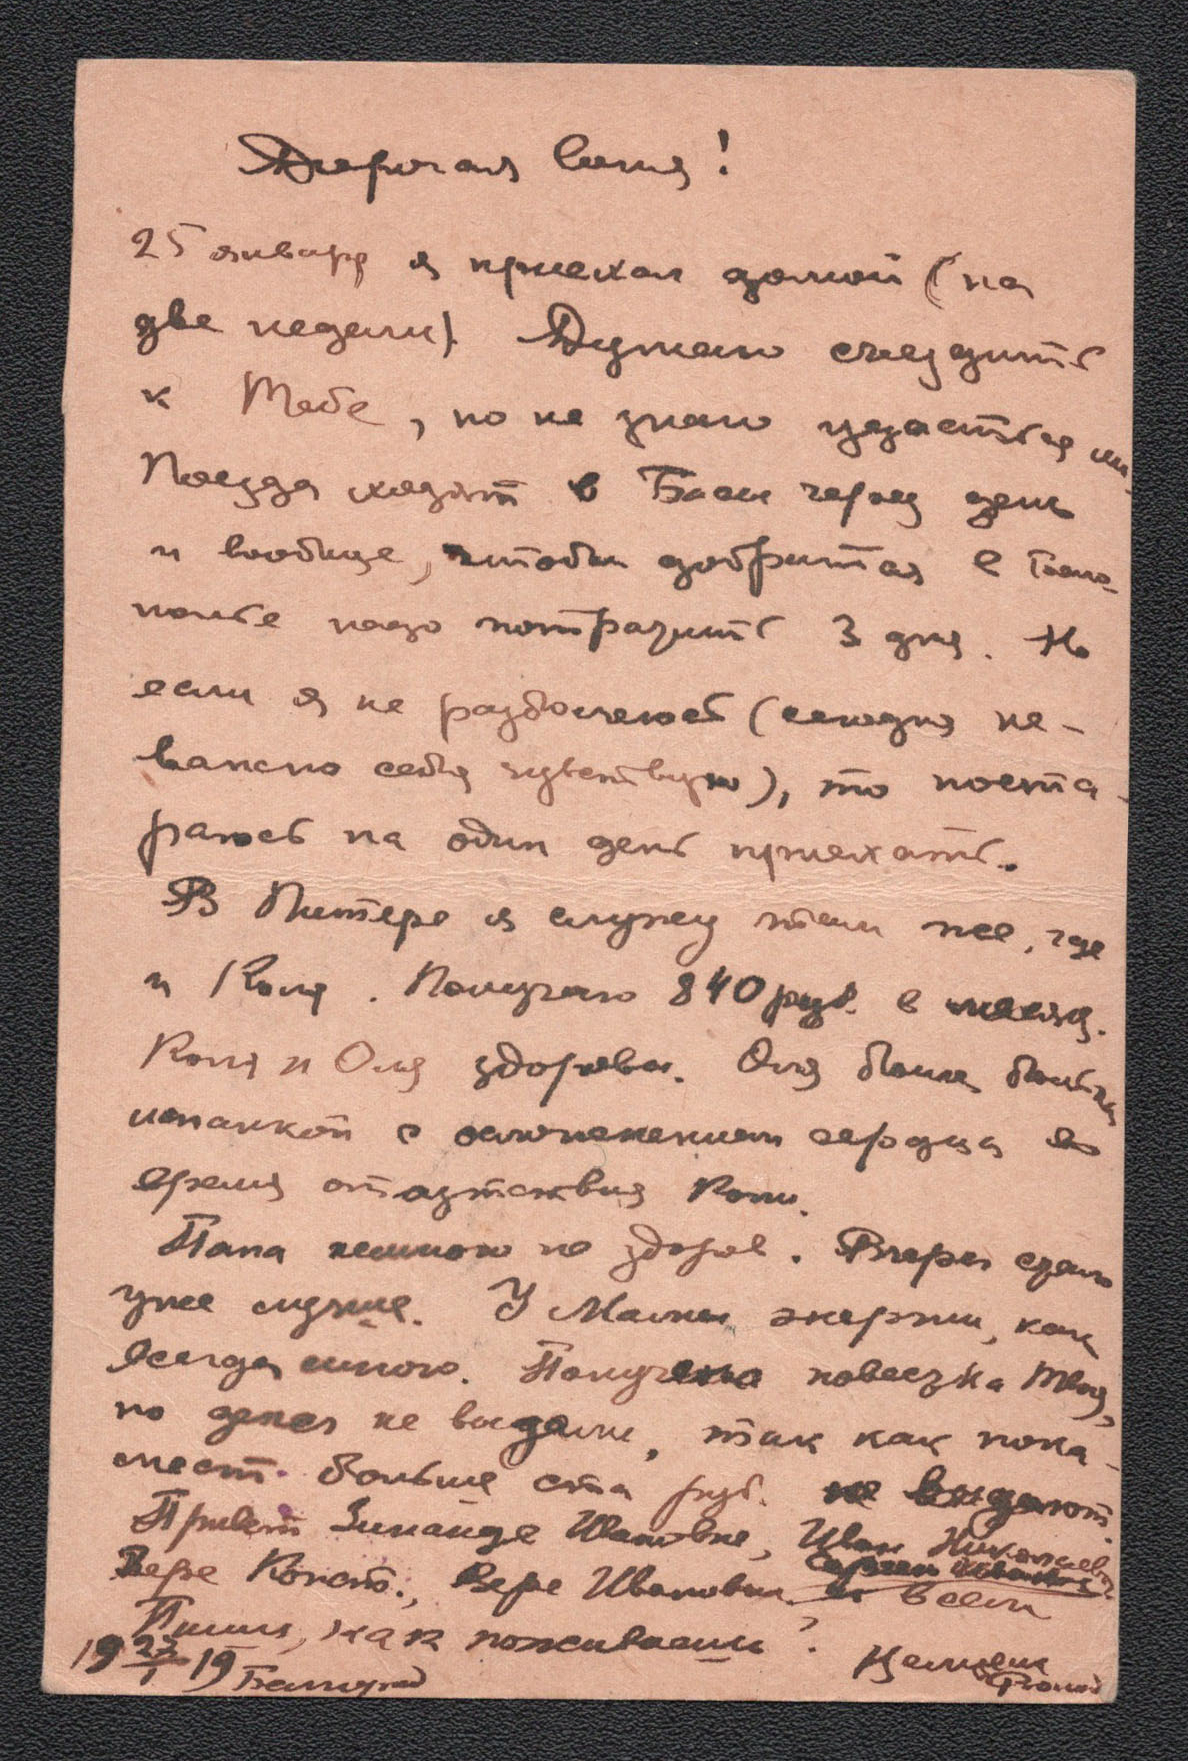 Дорогая Соня!
25 января я приехал домой (на
две недели). Думаю съездить
к Тебе, но не знаю удастся ли.
Поезда ходят в через день
и вообще, чтобы добраться в
надо потратить 3 дня. Но
если я не разболеюсь (сегодня не-
важно себя чувствую), то поста-
раюсь на один день приехать.
В Питере я служу там же, где
и Коля. Получаю 840 руб. в месяц.
Коля и Оля здоровы. Оля была больна
испанкой с осложнением сердца во
время отсутствия Коли.
Папа немного не здоров. Вчера стало
уже лучше. У Мамы энергии, как
всегда много. Получена повестка Твоя,
но денег не выдали, так как пока-
мест больше ста руб. не выдают.
Привет Зинаиде Ивановне, Иван Николаевич,
Вере Конст., Вере Ивановне и всем
Пиши, как поживаешь?
19 27/I 19 Целую